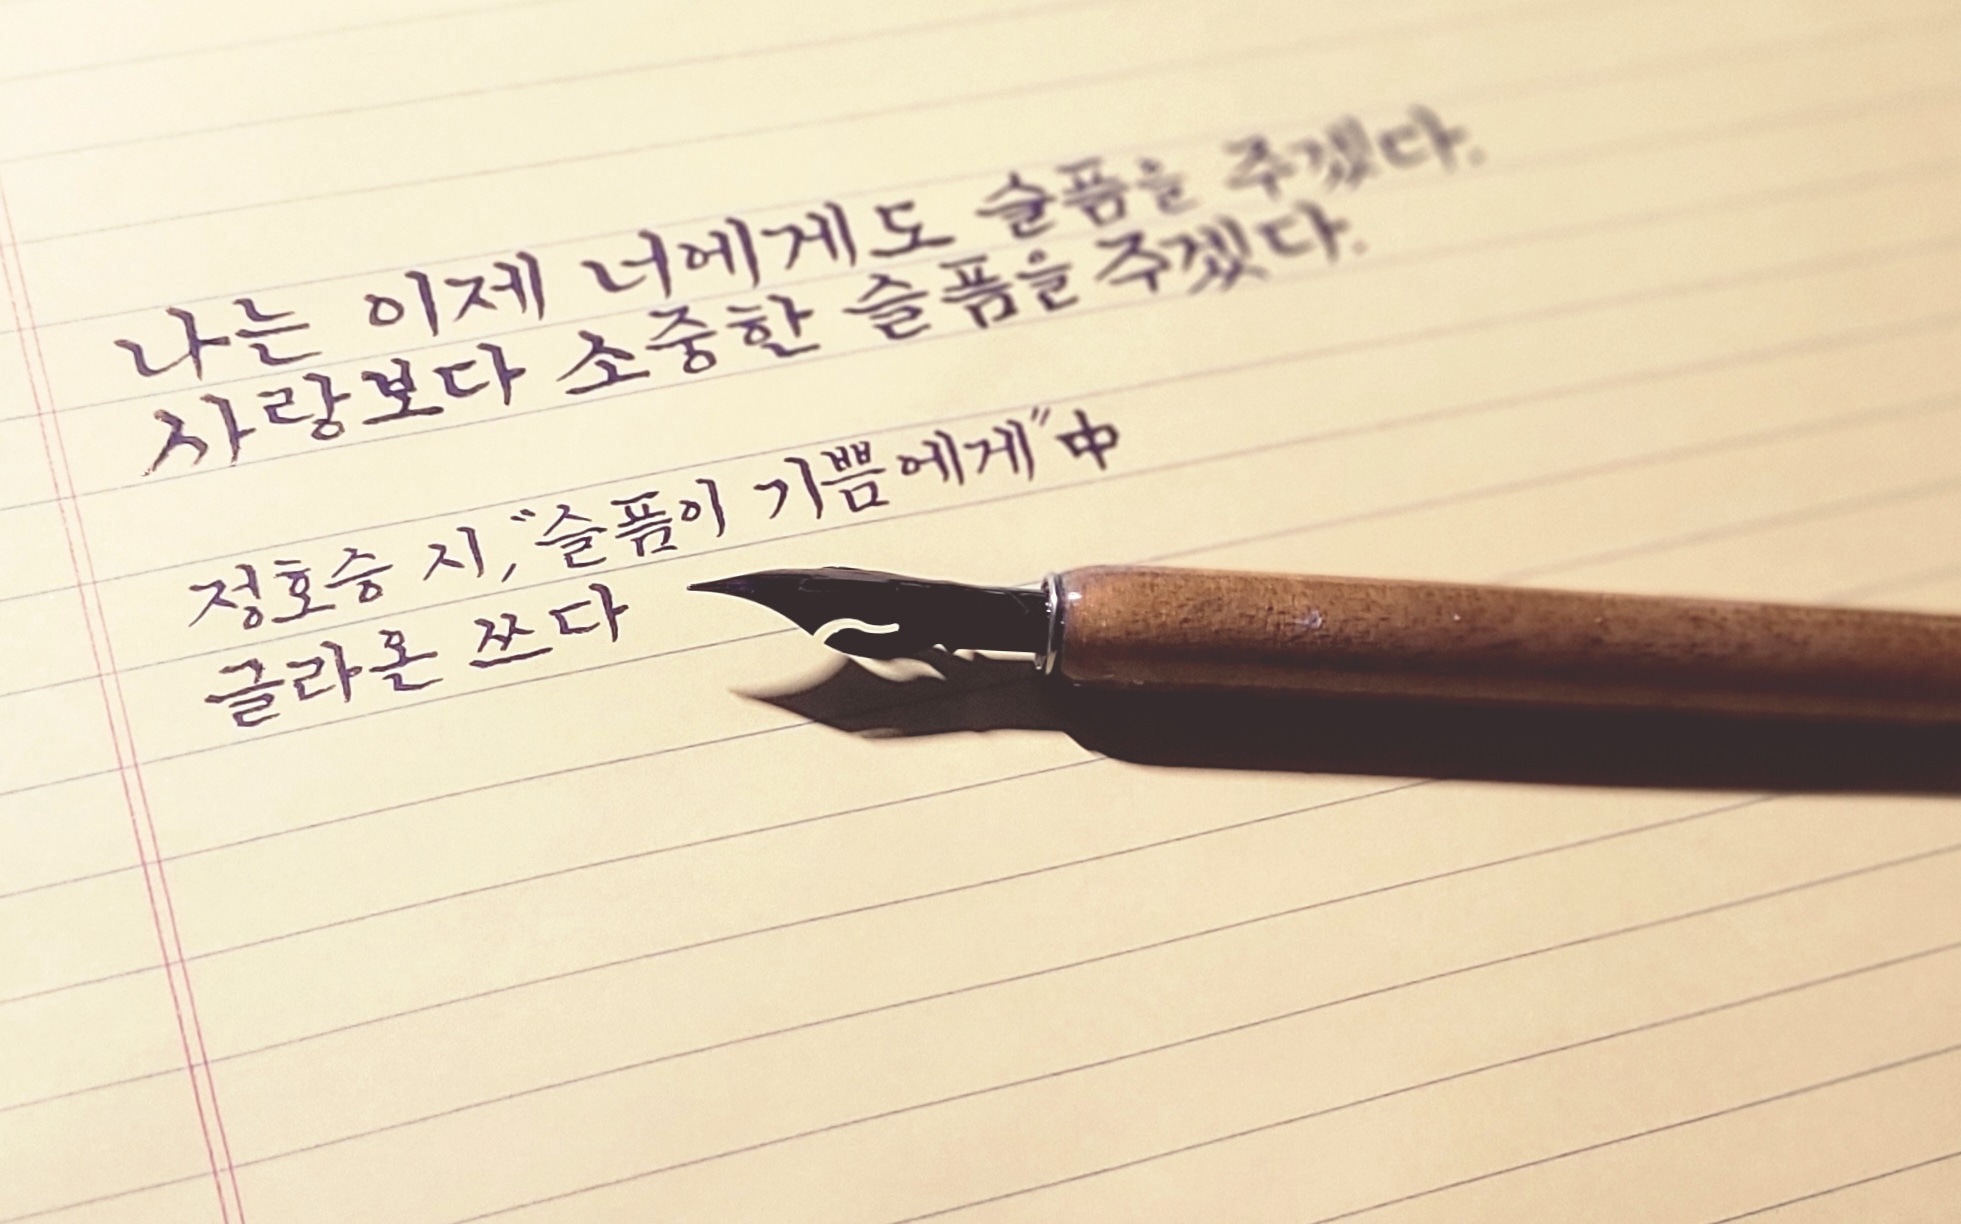 나는 이제 너에게도 슬픔을 주겠다.
사랑보다 소중한 슬픔을 주겠다.
정호승 시, "슬픔이 기쁨에게" 中
글라온 쓰다